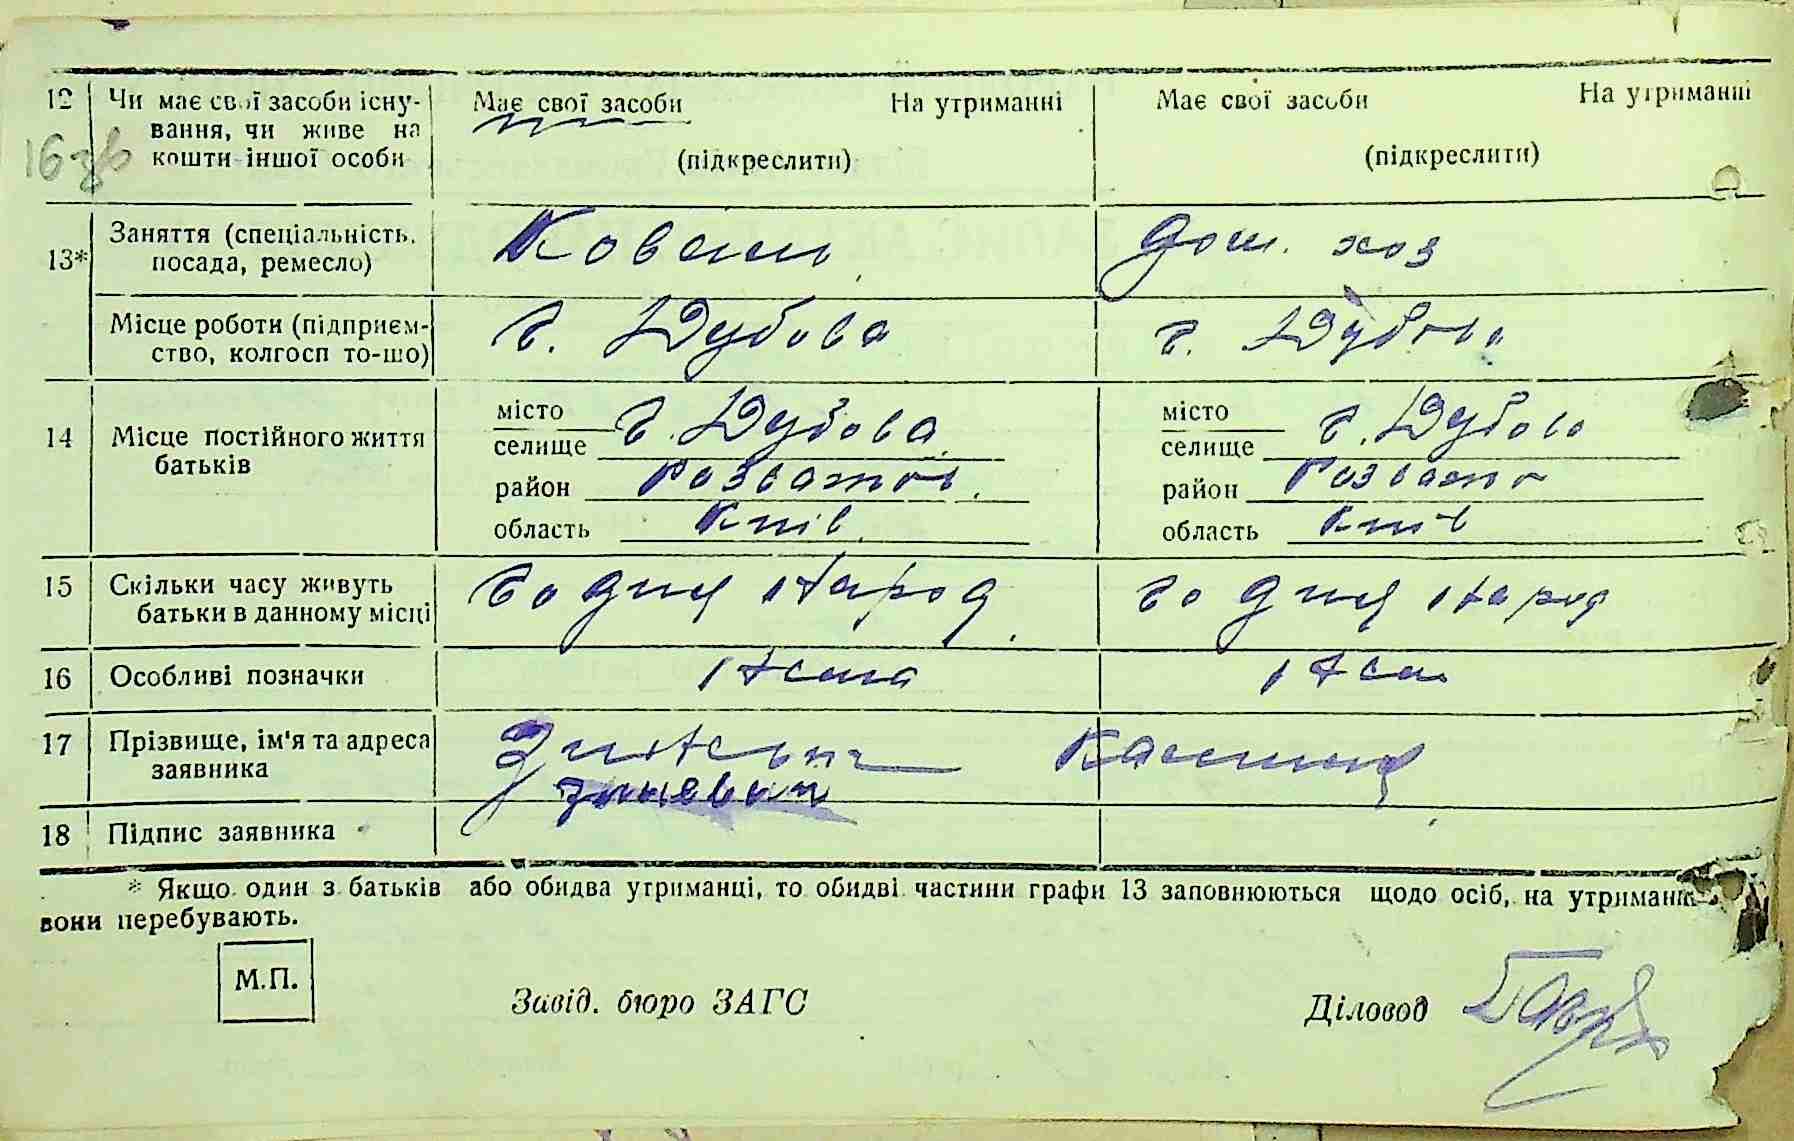 12 Чи має свої засоби існу- Має свої засоби На утриманні Має свої засоби На утриманні
вання, чи живе на
16 зв кошти іншої особи (підкреслити) (підкреслити)
Заняття (спеціальність, Коваль дом. хоз
13* посада, ремесло)
Місце роботи (підприєм- с. Дубова с. Дубова
ство, колгосп то-що)
місто с. Дубова місто с. Дубова
14 Місце постійного життя селище селище
батьків район Розважів. район Розваж
область Київ область Київ
15 Скільки часу живуть со дня народ. со дня народ
батьки в данному місці
16 Особливі позначки Нема Нема
17 Прізвище, ім'я та адреса
заявника
18 Підпис заявника
* Якщо один з батьків або обидва утриманці, то обидві частини графи 13 заповнюються щодо осіб, на утриманні
вони перебувають.
М.П.
Завід. бюро ЗАГС Діловод